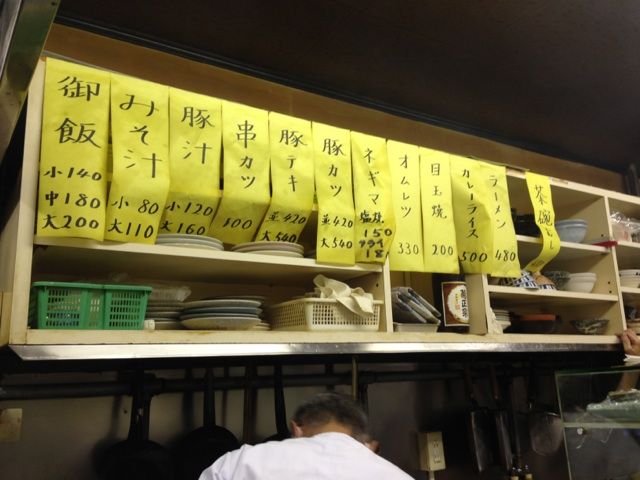 御飯
小140
中180
大200
みそ汁
小 80
大110
豚汁
小120
大160
串カツ
300
豚テキ
並420
大540
豚カツ
並420
大540
ネギマ
塩焼
150
フライ
オムレツ
330
目玉焼
200
カレーライス
500
ラーメン
480